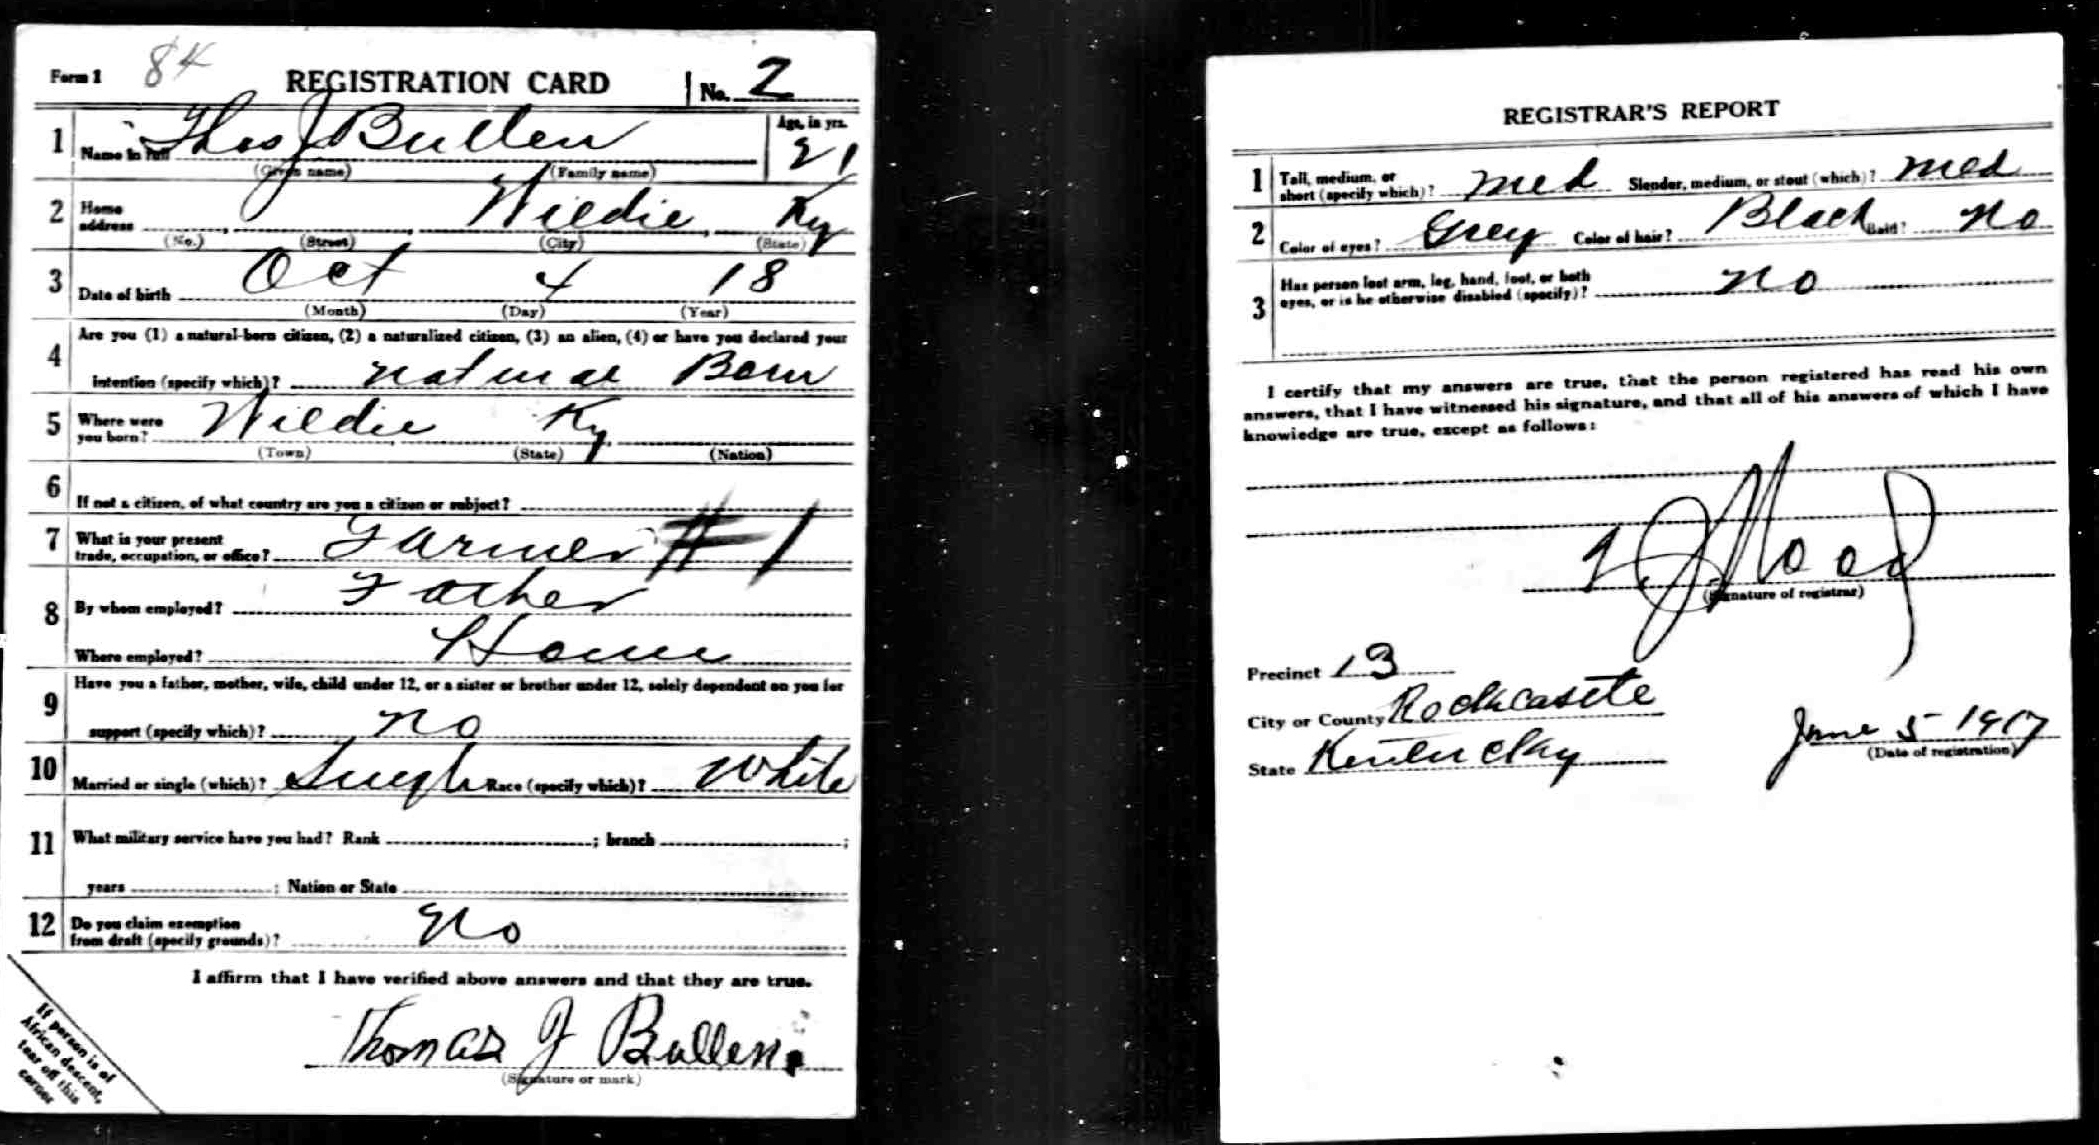 Form 1 84 REGISTRATION CARD No. 2
1 Name in full Thos J Bullen Age, in yrs. 21
(Given name) (Family name)
2 Home address Wildie, Ky
(No.) (Street) (City) (State)
3 Date of birth Oct 4 18
(Month) (Day) (Year)
4 Are you (1) a natural-born citizen, (2) a naturalized citizen, (3) an alien, (4) or have you declared your
intention (specify which)? Natural Born
5 Where were you born? Wildie Ky
(Town) (State) (Nation)
6 If not a citizen, of what country are you a citizen or subject?
7 What is your present trade, occupation, or office? Farmer # 1
8 By whom employed? Father
Where employed? Home
9 Have you a father, mother, wife, child under 12, or a sister or brother under 12, solely dependent on you for
support (specify which)? no
10 Married or single (which)? Single Race (specify which)? White
11 What military service have you had? Rank ; branch ;
years ; Nation or State
12 Do you claim exemption from draft (specify grounds)? No
I affirm that I have verified above answers and that they are true.
Thomas J Bullen.
(Signature or mark)
If person is of
African descent,
tear off this
corner
REGISTRAR'S REPORT
1 Tall, medium, or short (specify which)? Med Slender, medium, or stout (which)? Med
2 Color of eyes? Grey Color of hair? Black Bald? No
3 Has person lost arm, leg, hand, foot, or both
eyes, or is he otherwise disabled (specify)? no
I certify that my answers are true, that the person registered has read his own
answers, that I have witnessed his signature, and that all of his answers of which I have
knowledge are true, except as follows:
(Signature of registrar)
Precinct 13
City or County Rockcastle
State Kentucky
June 5 1917
(Date of registration)